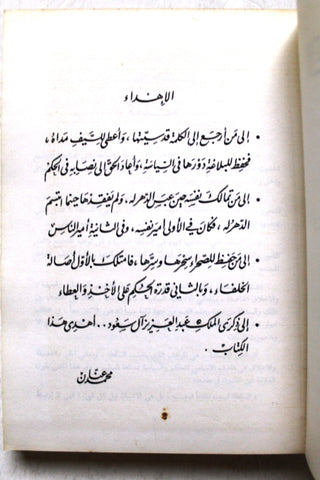 الإهداء
• إلى مَن أرجع إلى الكلمة قدسيتها، وأعطى للسَّيف مَداهُ،
فحفظ للبلاغة دَورَها في السِّياسة، وأعاد الحق إلى نصابه في الحكم
• إلى مَن تمالك نفسه حين عبس الدهر له، ولم يفقدها حينما ابتسم
الدهر له، فكان في الأولى أمير نفسه، وفي الثانية أمير الناس
• إلى مَن حفظ للصحراء سحرها وسرّها، فامتلك بالأول أصالة
الخلفاء، وبالثاني قدرة الحكم على الأخذ والعطاء
• إلى ذكرى الملك عبد العزيز آل سعود.. أهدي هذا
الكتاب.
محمد عنان